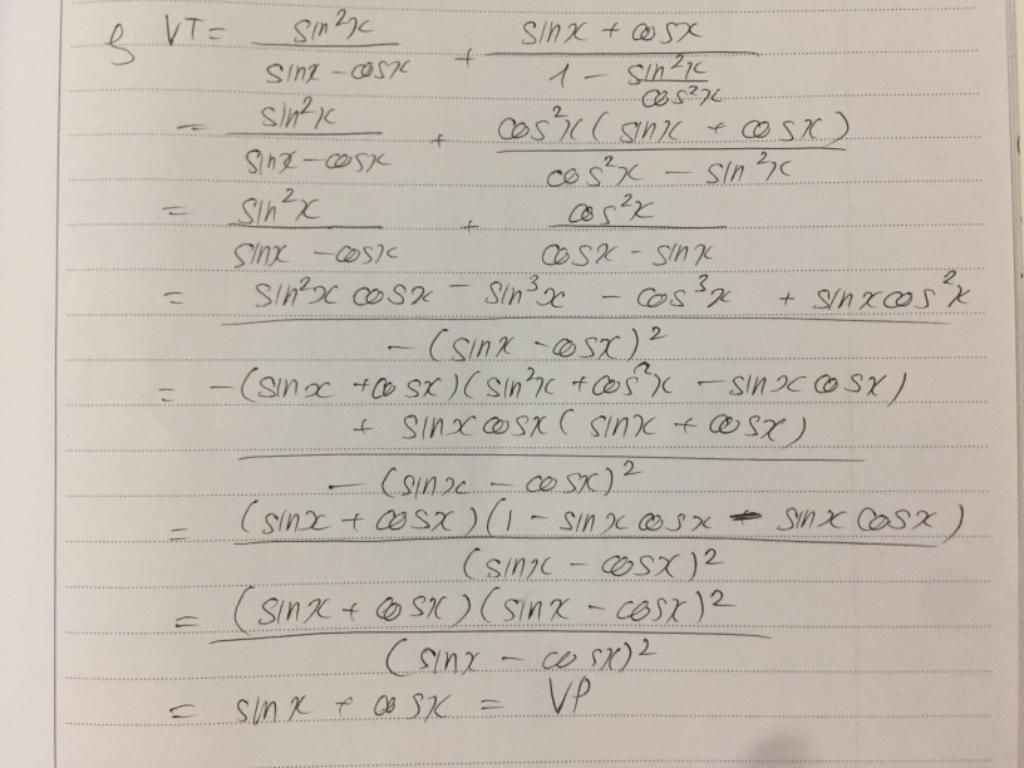 g VT = sin²x / (sinx - cosx) + (sinx + cosx) / (1 - sin²x / cos²x)
= sin²x / (sinx - cosx) + cos²x (sinx + cosx) / (cos²x - sin²x)
= sin²x / (sinx - cosx) + cos²x / (cosx - sinx)
= (sin²x cosx - sin³x - cos³x + sinx cos²x) / -(sinx - cosx)²
= -(sinx + cosx)(sin²x + cos²x - sinx cosx)
+ sinx cosx (sinx + cosx)
/ -(sinx - cosx)²
= (sinx + cosx)(1 - sinx cosx - sinx cosx) / (sinx - cosx)²
= (sinx + cosx)(sinx - cosx)² / (sinx - cosx)²
= sinx + cosx = VP